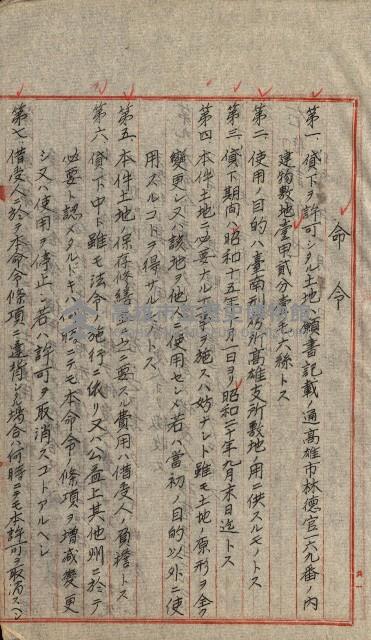 命令
第一 貸下ヲ許可シタル土地ハ願書記載ノ通高雄市林德官一六九番ノ内
建物敷地壹甲貳分壹毛六絲トス
第二 使用ノ目的ハ臺南刑務所高雄支所敷地ノ用ニ供スルモノトス
第三 貸下期間ハ昭和十五年 月一日ヨリ昭和二十年九月末日迄トス
第四 本件土地ニ必要ナル工事ヲ施スハ妨ナシト雖モ土地ノ原形ヲ
變更シ又ハ該地ヲ他人ニ使用セシメ若ハ當初ノ目的以外ニ使
用スルコトヲ得サルモノトス
第五 本件土地ノ保存修繕 之ニ要スル費用ハ借受人ノ負擔トス
第六 貸下中ト雖モ法令ノ施行ニ依リ又ハ公益上其他州ニ於テ
必要ト認メタルトキハ何時ニテモ本命令ノ條項ヲ增減變更
シ又ハ使用ヲ停止シ若ハ許可ヲ取消スコトアルヘシ
第七 借受人ニ於テ本命令條項ニ違背シタル場合ハ何時ニテモ本許可ヲ取消スコ
高雄市立歷史博物館